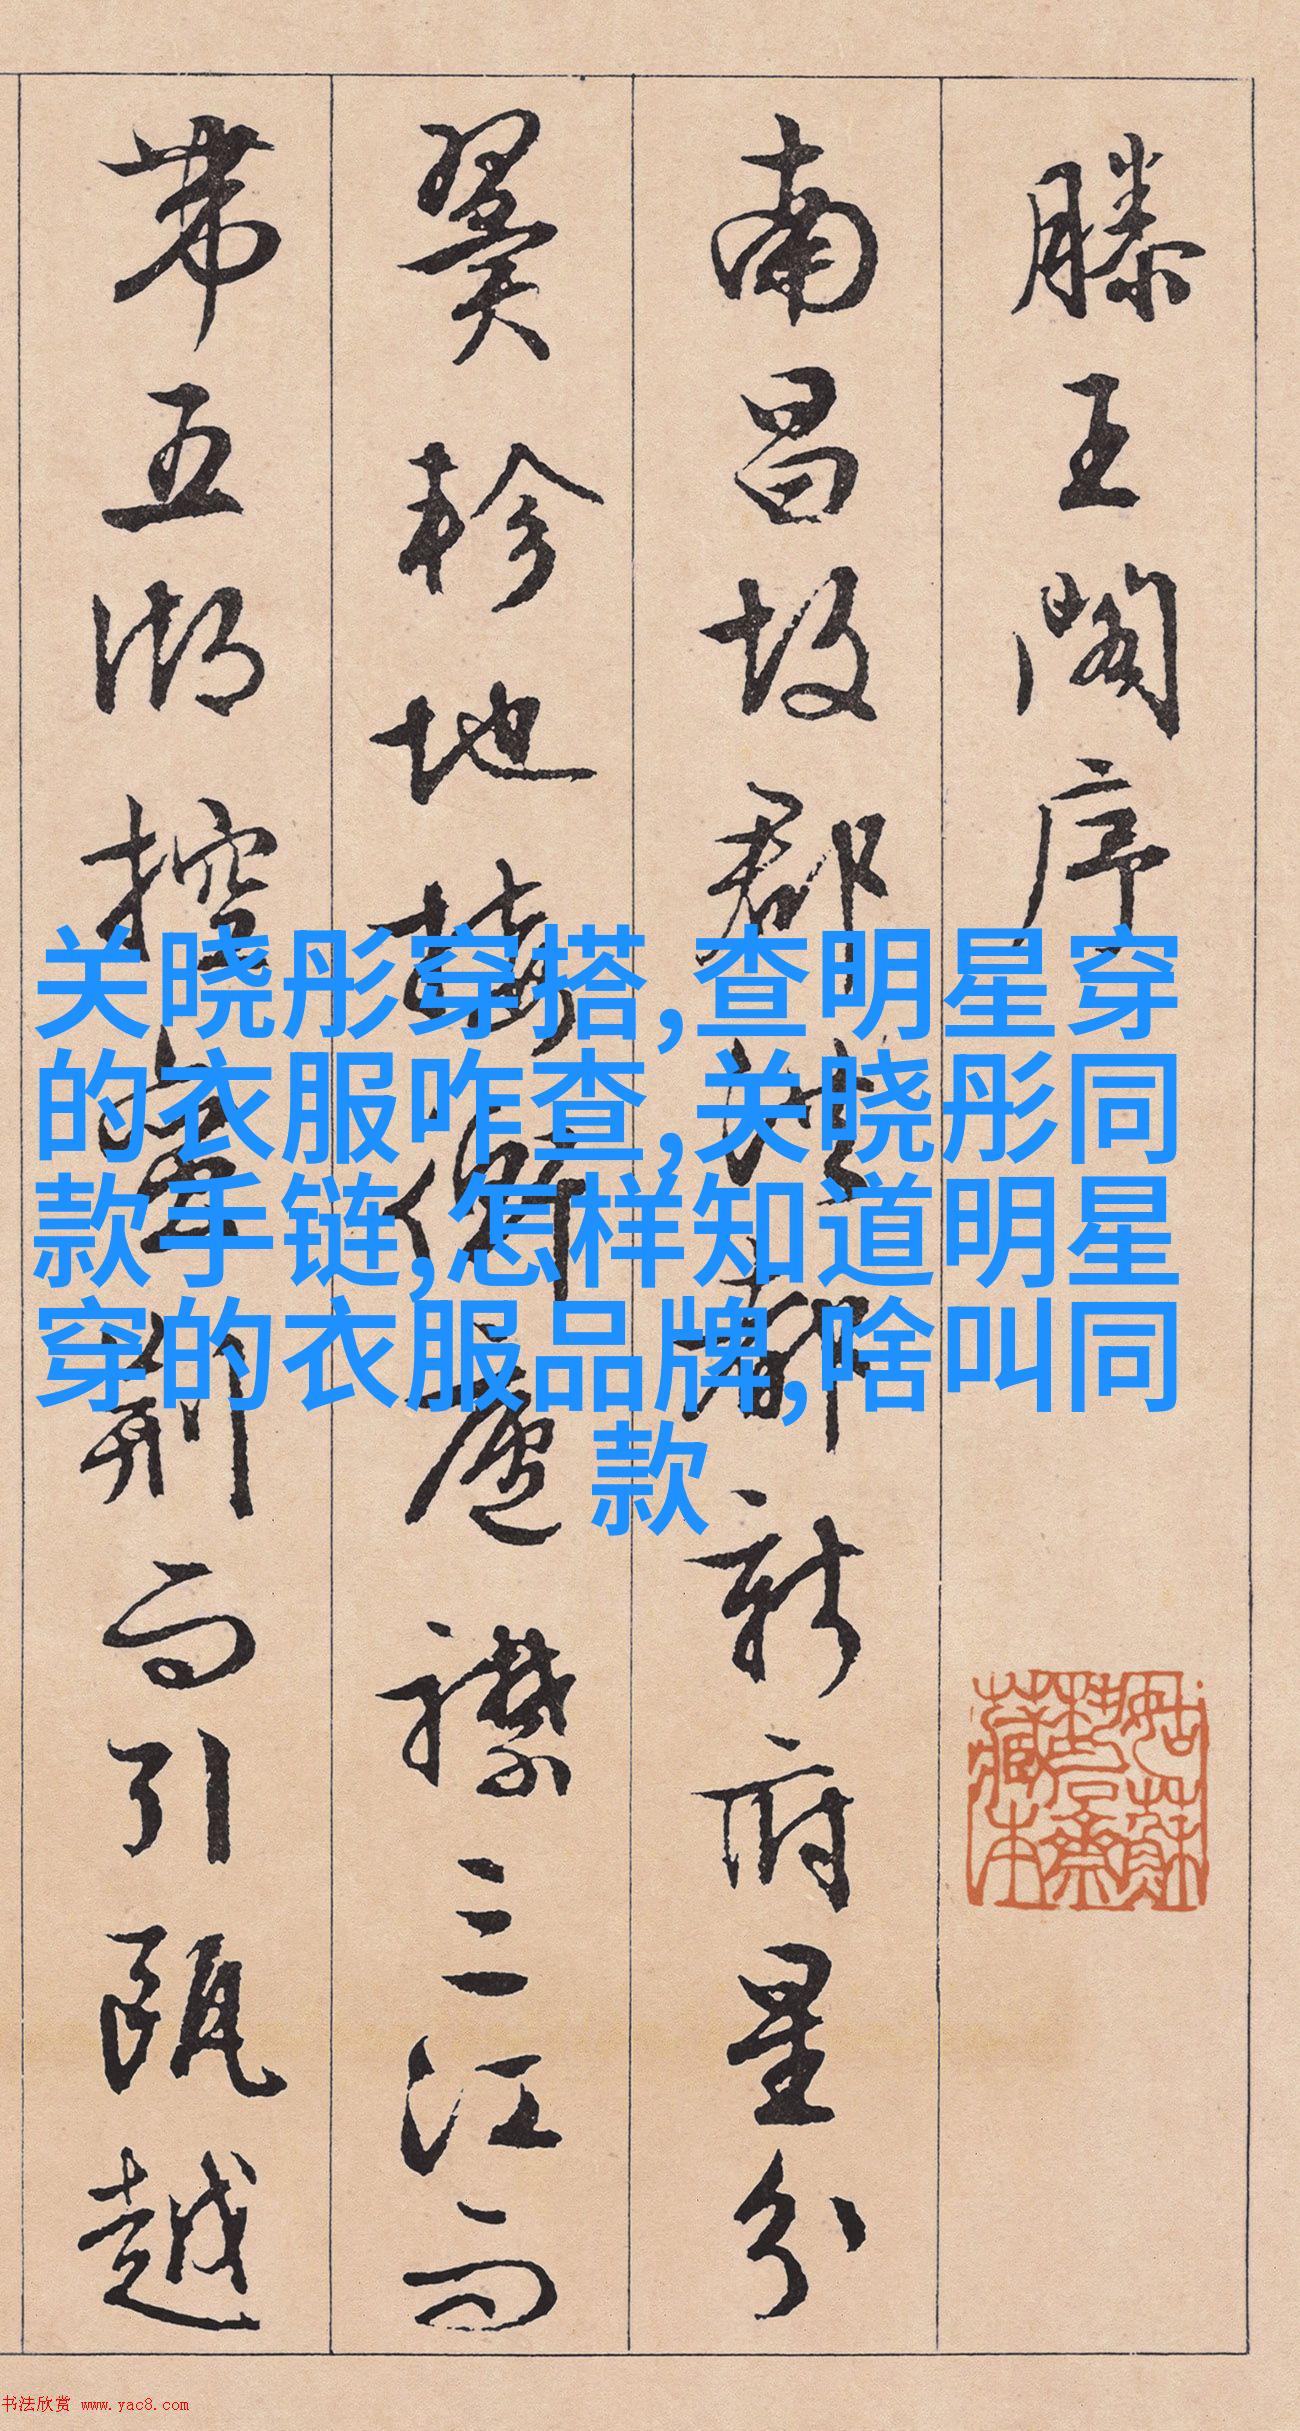 滕王阁序
南昌故郡洪都新府星分
翼轸地接衡庐襟三江而
带五湖控蛮荆而引瓯越
关晓彤穿搭,查明星穿
的衣服咋查,关晓彤同
款手链,怎样知道明星
穿的衣服品牌,啥叫同
款
书法欣赏 www.yac8.com